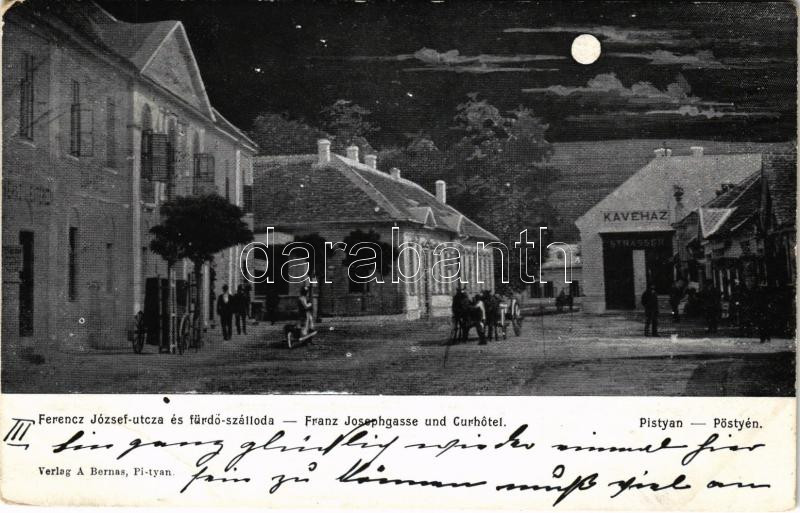 KÁVÉHÁZ
STRASSER
darabanth
Ferencz József-utcza és fürdő-szálloda — Franz Josephgasse und Curhôtel. Pistyan — Pöstyén.
III bin ganz glücklich wieder einmal hier
Verlag A Bernas, Pi-tyan.
sein zu können muß viel an